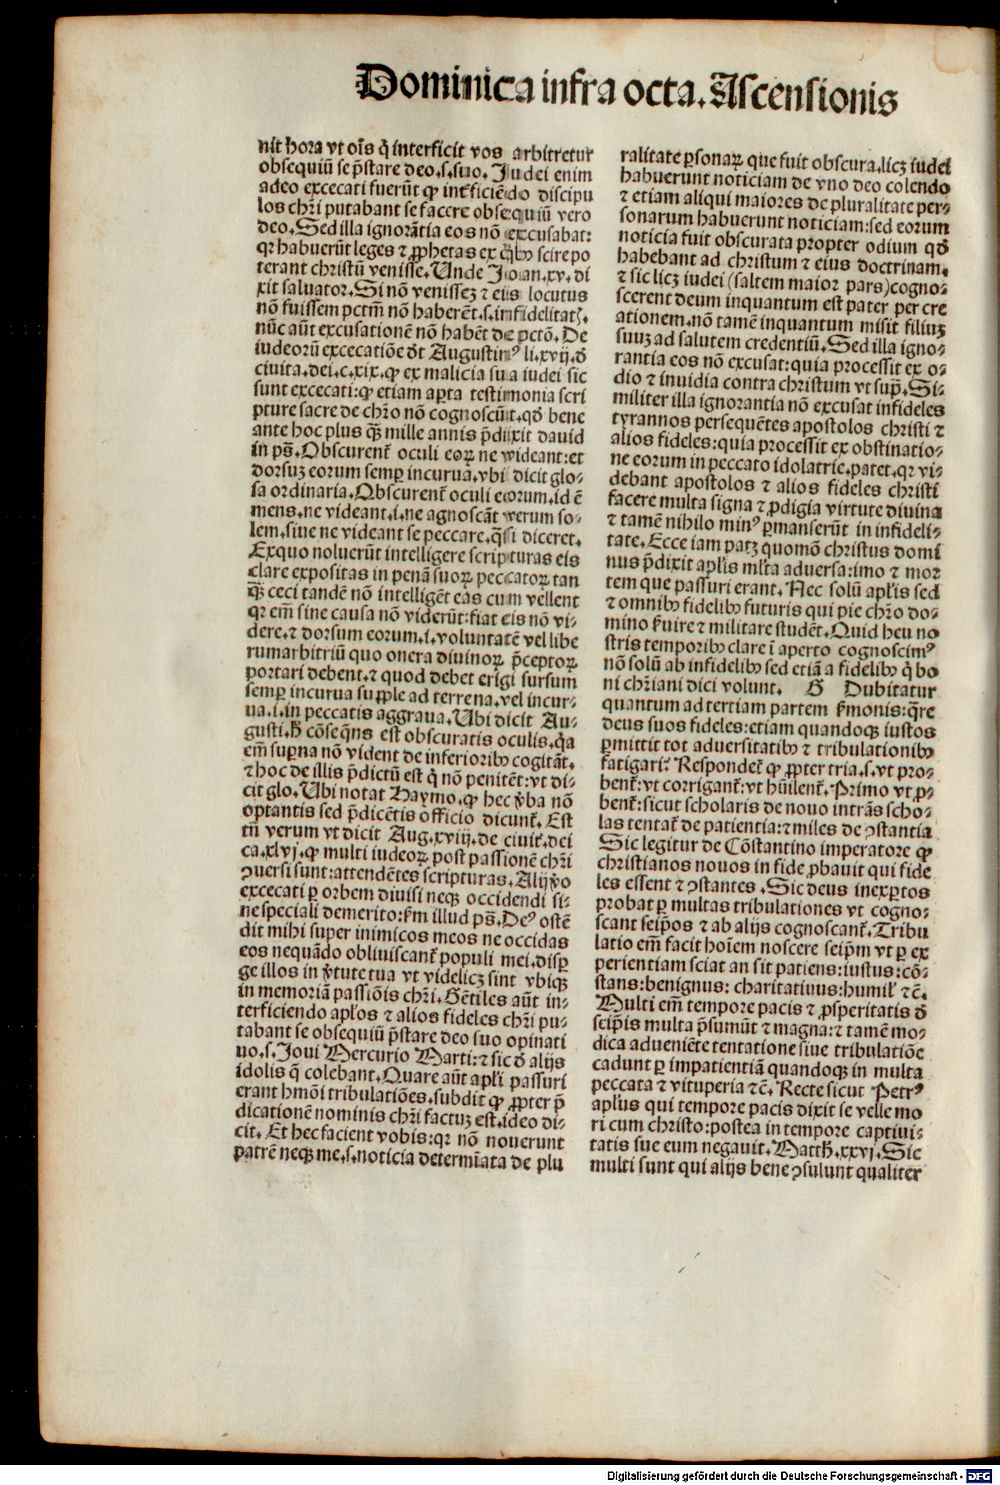 Dominica infra octa. Ascensionis
nit hora vt oīs q̄ interficit vos arbitretur
obsequiū se p̄stare deo.s.suo. Iudei enim
adeo excecati fuerūt ꝙ int̄ficiēdo discipu
los chr̄i putabant se facere obsequiū vero
deo. Sed illa ignorātia eos nō excusabat:
qꝛ habuerūt leges ⁊ ꝓphetas ex qͥbꝰ scire po
terant christū venisse. Unde Ioan.xv. di
xit saluator. Si nō venissez ⁊ eis locutus
nō fuissem pctm̄ nō haberēt.s.infidelitatꝭ.
nūc aūt excusationē nō habēt de pctō. De
iudeorū excecatiōe d̄t Augustinꝰ li.xvij.d̄
ciuita.dei.c.xix.ꝙ ex malicia sua iudei sic
sunt excecati:ꝙ etiam aꝑta testimonia scri
pture sacre de chr̄o nō cognoscūt.qd̄ bene
ante hoc plus qꝫ̄ mille annis p̄dixit dauid
in ps̄. Obscurent̄ oculi eoꝝ ne videant:et
dorsuz eorum semꝑ incurua.vbi dicit glo-
sa ordinaria. Obscurent̄ oculi eorum.id ē
mens.ne videant.i.ne agnoscāt verum so-
lem.siue ne videant se peccare.q̄si diceret.
Exquo noluerūt intelligere scripturas eis
clare expositas in penā suoꝝ peccatoꝝ tan
qꝫ̄ ceci tandē nō intelligēt eas cum vellent
qꝛ em̄ sine causa nō viderūt:fiat eis nō vi-
dere.⁊ dorsum eorum.i.voluntatē vel libe
rumarbitriū quo onera diuinoꝝ p̄ceptoꝝ
portari debent.⁊ quod debet erigi sursum
semꝑ incurua supple ad terrena.vel incur-
ua.i.in peccatis aggraua. Ubi dicit Au-
gusti.h̄ cōseq̄ns est obscuratis oculis.q̄a
em̄ suꝑna nō vident de inferioribꝰ cogitāt.
⁊ hoc de illis p̄dictū est q̄ nō penitēt:vt di-
cit glo. Ubi notat Haymo.ꝙ hec v̄ba nō
optantis sed p̄dicētis officio dicunt̄. Est
tn̄ verum vt dicit Aug.xviij.de ciuit̄.dei
ca.xlvj.ꝙ multi iudeoꝝ post passionē chr̄i
ꝯuersi sunt:attendētes scripturas. Alij v̄o
excecati ꝑ orbem diuisi neqꝫ occidendi si-
ne speciali demerito:f̄m illud ps̄. Deꝰ ostē
dit mihi super inimicos meos ne occidas
eos nequādo obliuiscant̄ populi mei.disꝑ
ge illos in v̄tute tua vt videlicꝫ sint vbiqꝫ
in memoriā passiōis chr̄i. Gētiles aūt in-
terficiendo apl̄os ⁊ alios fideles chr̄i pu-
tabant se obsequiū p̄stare deo suo opinati
uo.s.Ioui Mercurio Marti:⁊ sic d̄ alijs
idolis q̄ colebant. Quare aūt apl̄i passuri
erant hmōi tribulatiōes.subdit ꝙ ꝓpter p̄
dicationē nominis chr̄i factuz est.ideo di-
cit. Et hec facient vobis:qꝛ nō nouerunt
patrē neqꝫ me.s.noticia determīata de plu
ralitate ꝑsonaꝝ que fuit obscura.licꝫ iudei
habuerunt noticiam de vno deo colendo
⁊ etiam aliqui maiores de pluralitate per-
sonarum habuerunt noticiam:sed eorum
noticia fuit obscurata propter odium qd̄
habebant ad christum ⁊ eius doctrinam.
⁊ sic licꝫ iudei (saltem maior pars) cogno-
scerent deum inquantum est pater per cre
ationem.nō tamē inquantum misit filiuz
suuz ad salutem credentiū. Sed illa igno-
rantia eos nō excusat:quia processit ex o-
dio ⁊ inuidia contra christum vt supͣ. Si-
militer illa ignorantia nō excusat infideles
tyrannos persequētes apostolos christi ⁊
alios fideles:quia processit ex obstinatio-
ne eorum in peccato idolatrie.patet.qꝛ vi-
debant apostolos ⁊ alios fideles christi
facere multa signa ⁊ ꝓdigia virtute diuina
⁊ tamē nihilo minꝰ ꝑmanserūt in infideli-
tate. Ecce iam patꝫ quomō christus domi
nus p̄dixit apl̄is ml̄ta aduersa:imo ⁊ mor
tem que passuri erant. Nec solū apl̄is sed
⁊ omnibꝰ fidelibꝰ futuris qui pie chr̄o do-
mino ẜuire ⁊ militare studēt. Quid heu no
stris temporibꝰ clare ī aperto cognoscimꝰ
nō solū ab infidelibꝰ sed etiā a fidelibꝰ q̄ bo
ni chr̄iani dici volunt. G Dubitatur
quantum ad tertiam partem ẜmonis:q̄re
deus suos fideles:etiam quandoqꝫ iustos
ꝑmittit tot aduersitatibꝰ ⁊ tribulationibꝰ
fatigari? Respondet̄ ꝙ ꝓpter tria.s.vt pro-
bent̄:vt corrigant̄:vt hūilent̄. Primo vt ꝓ-
bent̄:sicut scholaris de nouo intrās scho-
las tentat̄ de patientia:⁊ miles de ꝯstantia
Sic legitur de Cōstantino imperatore ꝙ
christianos nouos in fide ꝓbauit qui fide
les essent ⁊ ꝯstantes. Sic deus inexꝑtos
probat ꝑ multas tribulationes vt cogno-
scant seip̄os ⁊ ab alijs cognoscant̄. Tribu
latio em̄ facit hoīem noscere seip̄m vt ꝑ ex
perientiam sciat an sit patiens:iustus:cō-
stans:benignus: charitatiuus:humil̓ ⁊c̄.
Multi em̄ tempore pacis ⁊ ꝓsperitatis d̄
seip̄is multa p̄sumūt ⁊ magna:⁊ tamē mo-
dica adueniēte tentatione siue tribulatiōe
cadunt ꝑ impatientiā quandoqꝫ in multa
peccata ⁊ vituperia ⁊c̄. Recte sicut Petrꝰ
apl̄us qui tempore pacis dixit se velle mo
ri cum christo:postea in tempore captiui-
tatis sue eum negauit. Matth.xxvj. Sic
multi sunt qui alijs bene ꝯsulunt qualiter
Digitalisierung gefördert durch die Deutsche Forschungsgemeinschaft - DFG